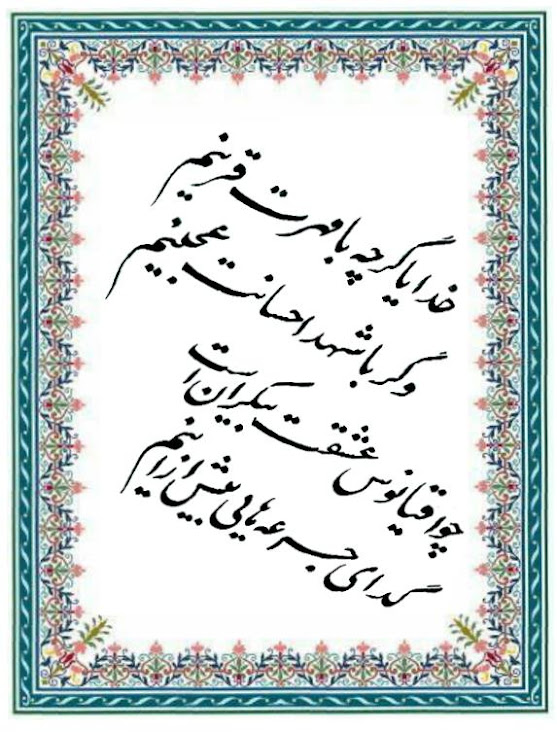 خدایا گرچه با مهرت قرینم
وگر با شهد احسانت عجینم
چو اقیانوس عشقت بیکران است
گدای جرعه هایی بیش از اینم